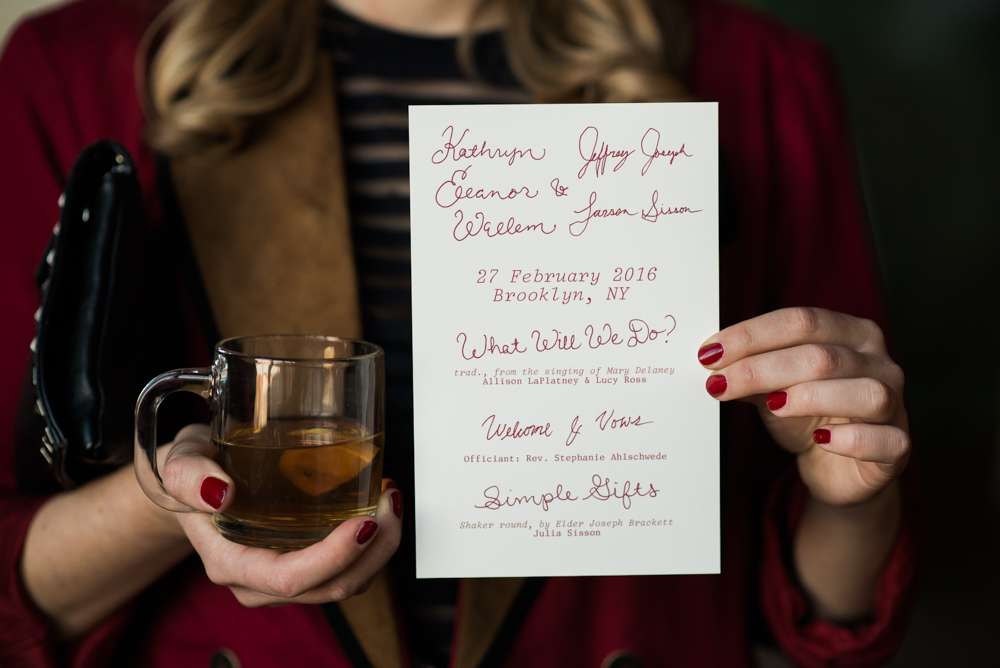 Kathryn Jeffrey Joseph
Eleanor &
Willem Larson Sisson
27 February 2016
Brooklyn, NY
What Will We Do?
trad., from the singing of Mary Delaney
Allison LaPlatney & Lucy Ross
Welcome & Vows
Officiant: Rev. Stephanie Ahlschwede
Simple Gifts
Shaker round, by Elder Joseph Brackett
Julia Sisson